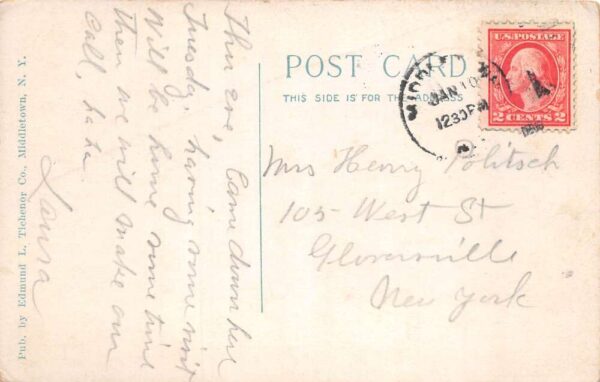 Thur eve, Came down here
Tuesday, having some visit
Will be home some time
then we will make our
Call, ha ha
Laura
Pub. by Edmund L. Tichenor Co., Middletown, N. Y.
POST CARD
THIS SIDE IS FOR THE ADDRESS
JAN 10
1230PM
U.S. POSTAGE
2 CENTS 2
Mrs Henry Politsch
105 West St
Gloversville
New York